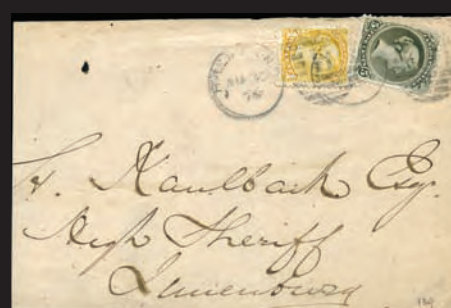 H. Kaulback Esq.
High Sheriff
Lunenburg